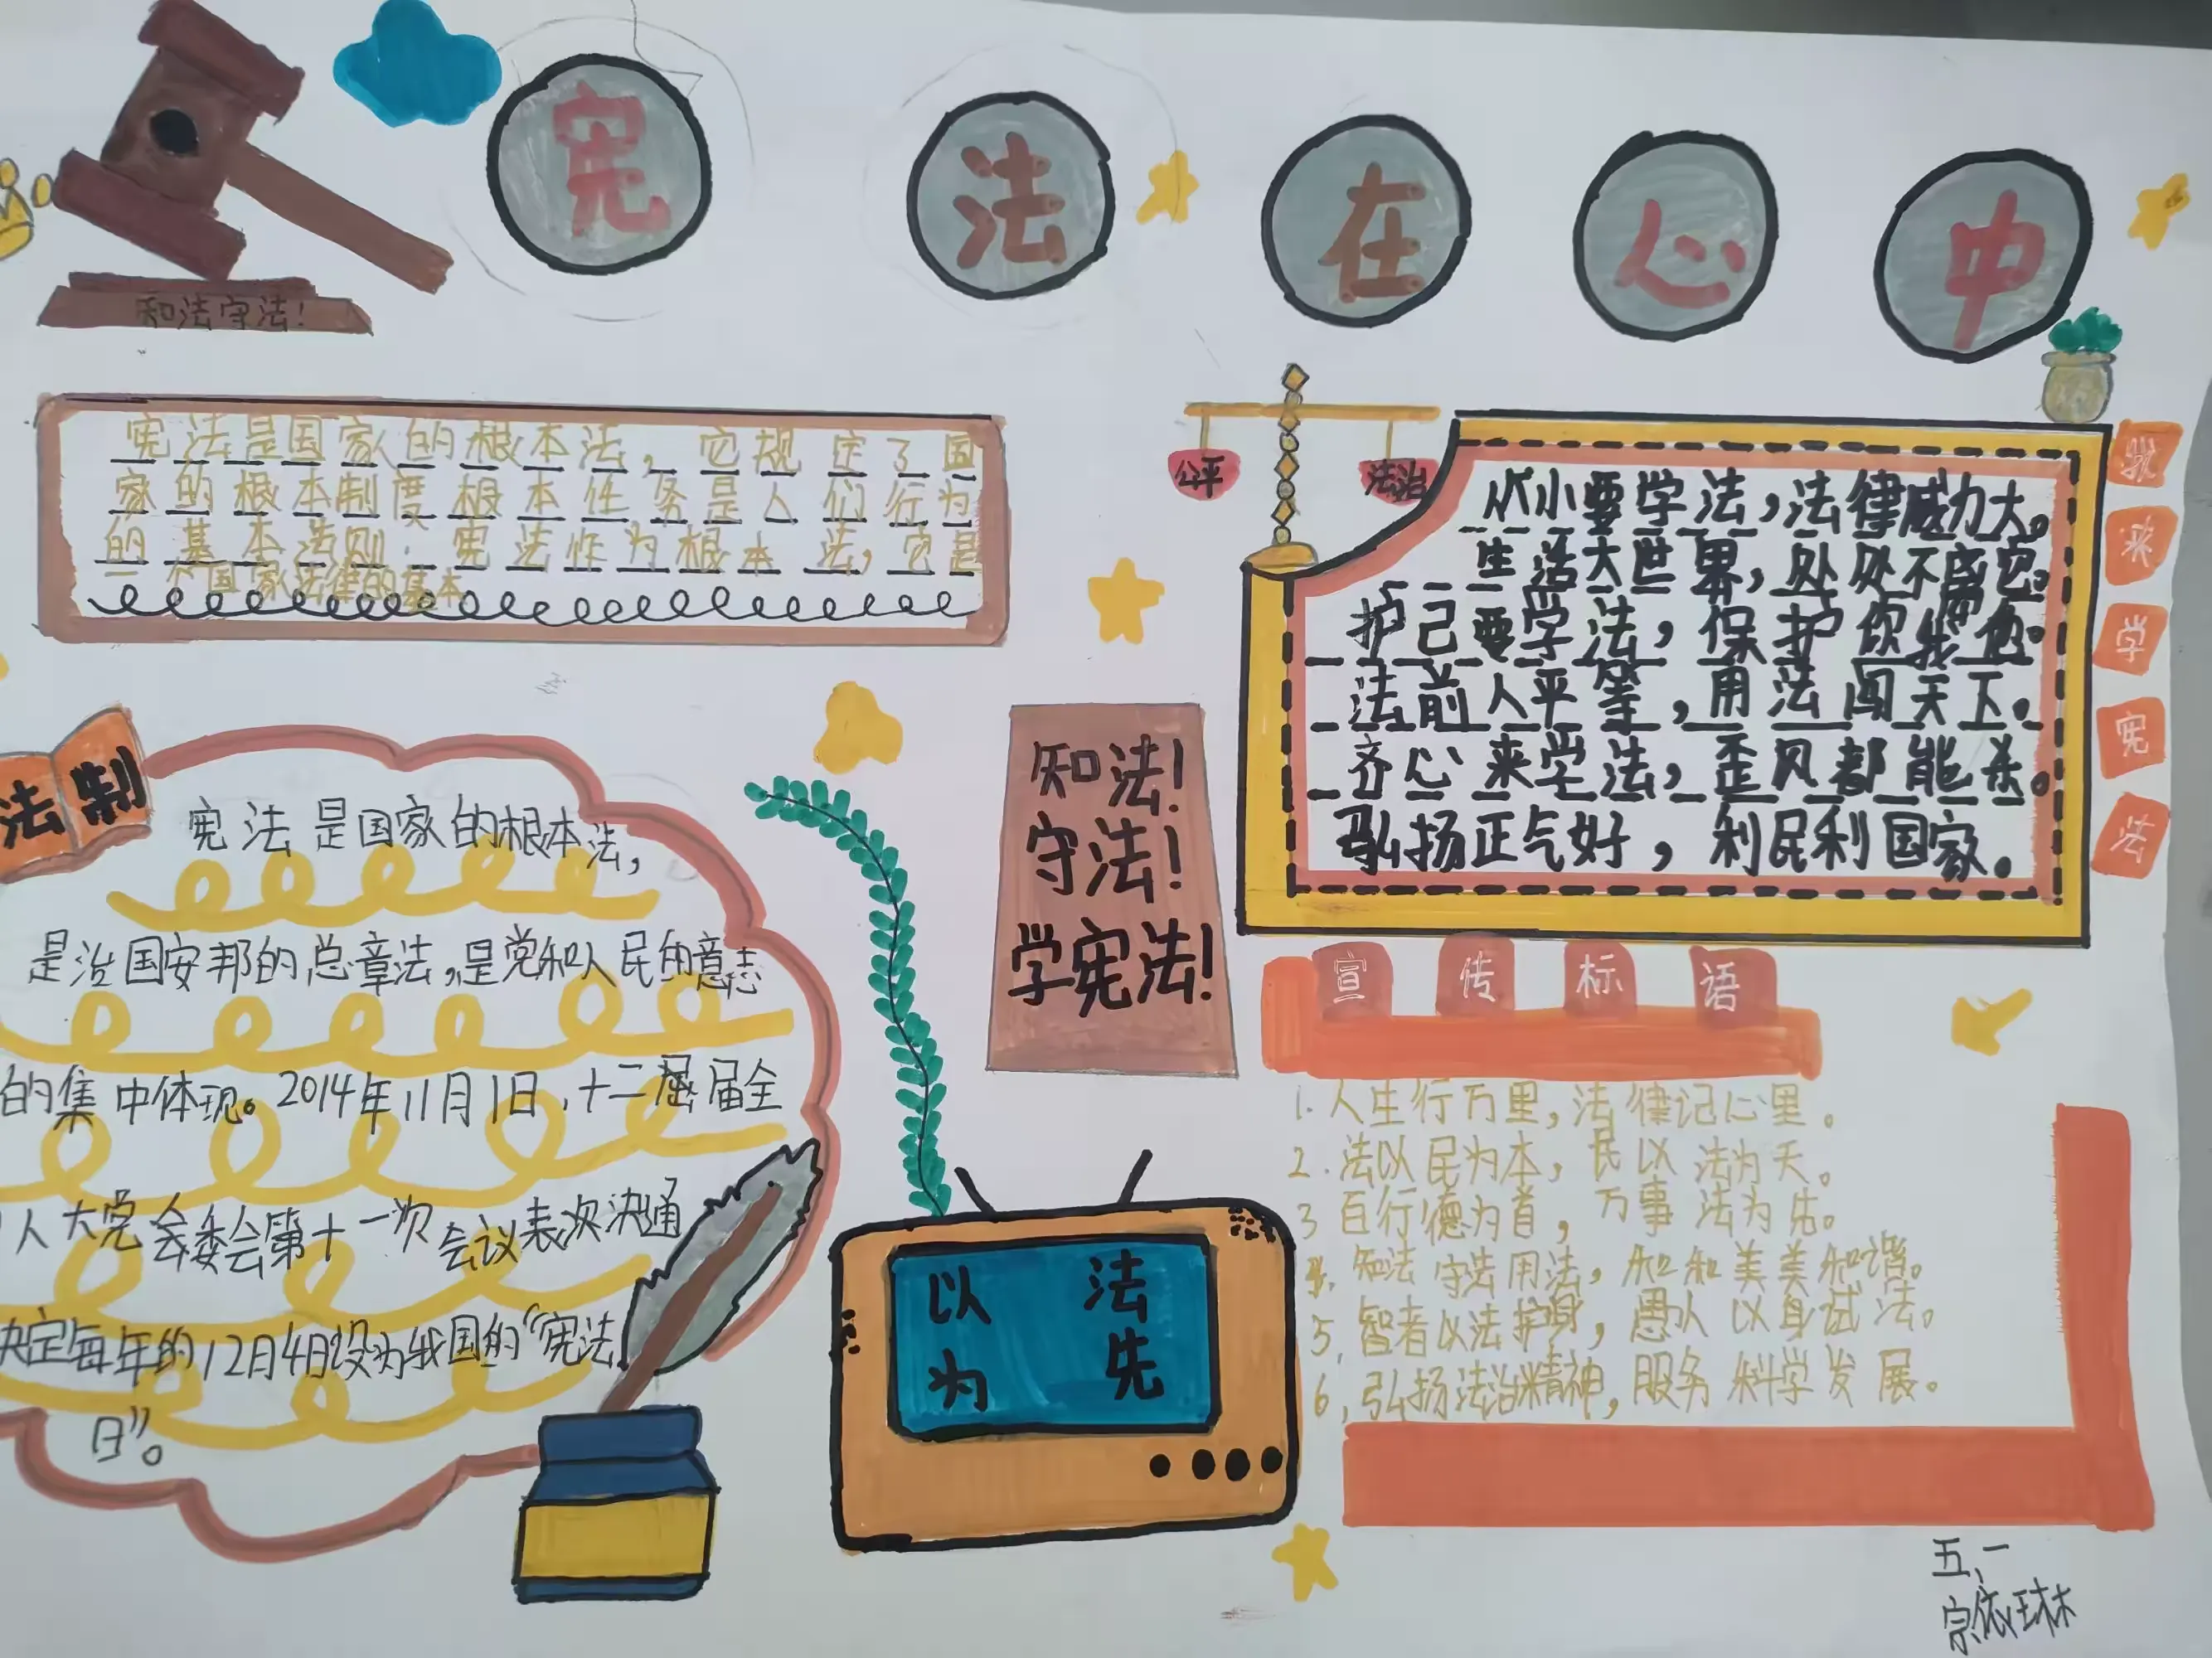 宪法在心中
知法守法!
宪法是国家的根本法，它规定了国
家的根本制度根本任务是人们行为
的基本法则.宪法作为根本法，它是
一个国家法律的基本
公平
法治
从小要学法，法律威力大。
生活大世界，处处不离它。
护己要学法，保护你我他。
法前人平等，用法闯天下。
齐心来学法，歪风都能杀。
弘扬正气好，利民利国家。
我
来
学
宪
法
法制
宪法是国家的根本法，
是治国安邦的总章法，是党和人民的意志
的集中体现。2014年11月1日，十二届届全
人大党会委会第十一次会议表次决通
决定每年的12月4日设为我国的“宪法
日”。
知法!
守法!
学宪法!
以法
为先
宣传标语
1.人生行万里，法律记心里。
2.法以民为本，民以法为天。
3百行德为首，万事法为先。
4.知法守法用法，和和美美和谐。
5,智者以法护身，愚人以身试法。
6,弘扬法治精神，服务科学发展。
五、一
宗依琳